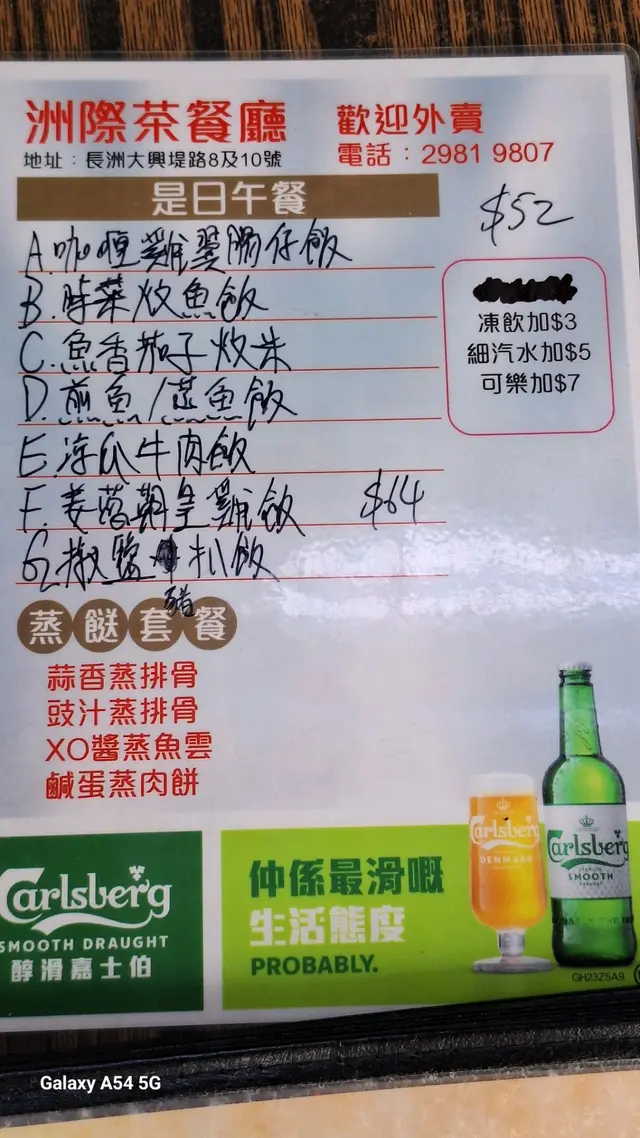 洲際茶餐廳
歡迎外賣
地址：長洲大興堤路8及10號
電話：2981 9807
是日午餐
$52
A.咖喱雞翼腸仔飯
B.時菜炆魚飯
C.魚香茄子炆米
D.煎魚/蒸魚飯
E.涼瓜牛肉飯
F.姜蓉霸皇雞飯 $64
G.椒鹽豬扒飯
凍飲加$3
細汽水加$5
可樂加$7
蒸餸套餐
蒜香蒸排骨
豉汁蒸排骨
XO醬蒸魚雲
鹹蛋蒸肉餅
Carlsberg
SMOOTH DRAUGHT
醇滑嘉士伯
仲係最滑嘅
生活態度
PROBABLY.
Carlsberg
DENMARK
Carlsberg
SMOOTH
DRAUGHT
GH23Z5A9
Galaxy A54 5G